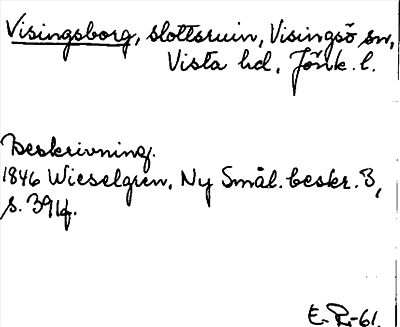 Visingsborg, slottsruin, Visingsö sn,
Vista hd, Jönk. l.
Beskrivning.
1846 Wieselgren, Ny Smål. beskr. 3,
s. 391f.
E. R-61.